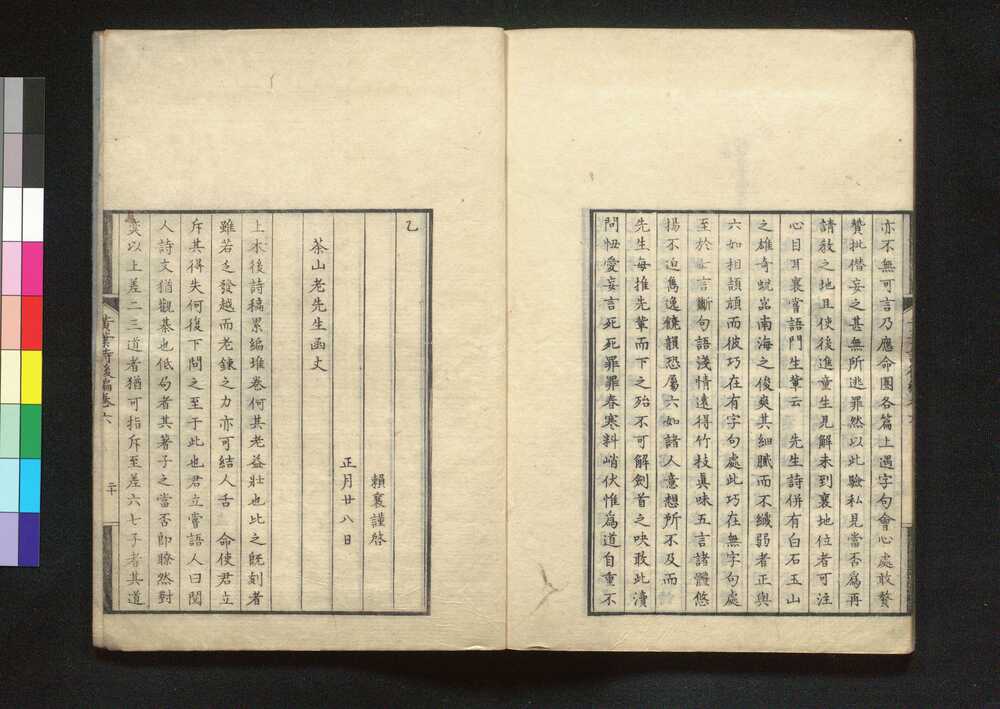 亦不無可言乃應命圏各篇上遇字句會心處敢贅
贊批僭妄之甚無所逃罪然以此驗私見當否爲再
請教之地且使後進童生見解未到襄地位者可注
心目耳襄嘗語門生輩云　先生詩併有白石玉山
之雄奇蛻巖南海之俊爽其細膩而不纖弱者正與
六如相頡頏而彼巧在有字句處此巧在無字句處
至於每言斷句語淺情遠得竹枝眞味五言諸體悠
揚不迫雋逸饒韻恐屬六如諸人意想所不及而
先生每推先輩而下之殆不可解劍首之吷敢此瀆
問忸愛妄言死死罪罪春寒料峭伏惟爲道自重不
乙
賴襄謹啓
正月廿八日
茶山老先生函丈
上木後詩稿累編堆卷何其老益壯也比之既刻者
雖若乏發越而老鍊之力亦可結人舌　命使君立
斥其得失何復下問之至于此也君立嘗語人曰閲
人詩文猶觀棊也低局者其著子之當否即瞭然對
奕以上差二三道者猶可指斥至差六七子者其道
黄葉夕陽後編卷六
二十